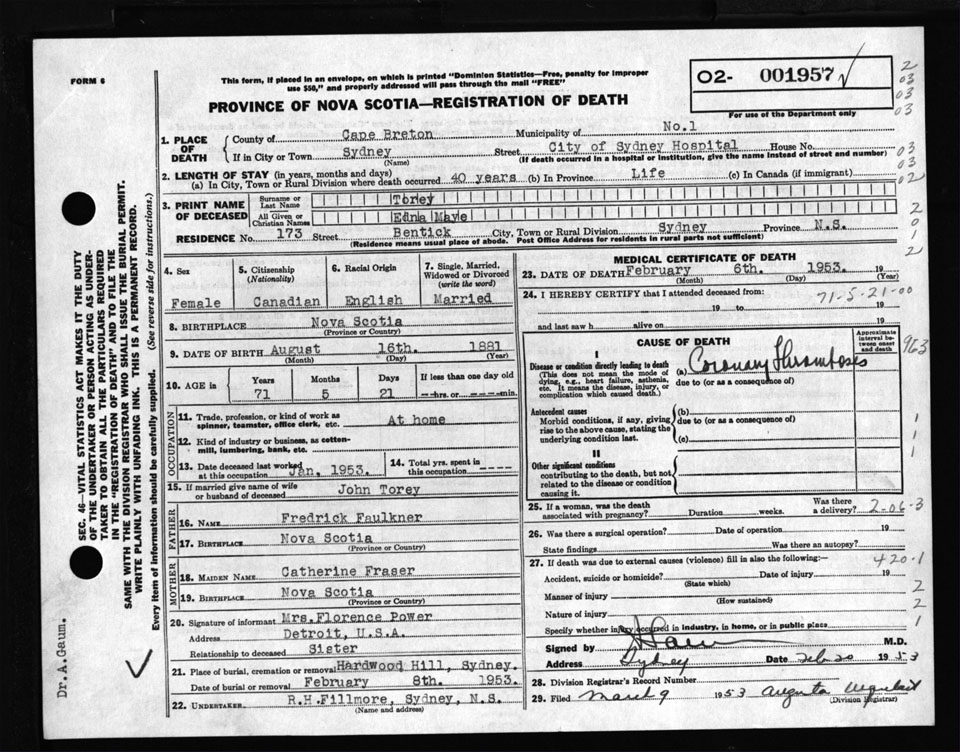 FORM 6
This form, if placed in an envelope, on which is printed "Dominion Statistics—Free, penalty for improper
use $50," and properly addressed will pass through the mail "FREE"
PROVINCE OF NOVA SCOTIA—REGISTRATION OF DEATH
O2- 001957
For use of the Department only
2
03
03
03
1. PLACE OF DEATH
County of Cape Breton Municipality of No.1
If in City or Town Sydney Street City of Sydney Hospital House No.
(Name) (If death occurred in a hospital or institution, give the name instead of street and number)
03
03
02
2. LENGTH OF STAY (in years, months and days)
(a) In City, Town or Rural Division where death occurred 40 years (b) In Province Life (c) In Canada (if immigrant)
3. PRINT NAME OF DECEASED
Surname or Last Name Torey
All Given or Christian Names Edna Maye
RESIDENCE No. 173 Street Bentick City, Town or Rural Division Sydney Province N.S.
(Residence means usual place of abode. Post Office Address for residents in rural parts not sufficient)
2
0
1
2
4. Sex Female
5. Citizenship (Nationality) Canadian
6. Racial Origin English
7. Single, Married, Widowed or Divorced (write the word) Married
8. BIRTHPLACE Nova Scotia
(Province or Country)
9. DATE OF BIRTH August 16th. 1881
(Month) (Day) (Year)
10. AGE in Years 71 Months 5 Days 21 If less than one day old
---hrs. or ----min.
OCCUPATION
11. Trade, profession, or kind of work as
spinner, teamster, office clerk, etc. At home
12. Kind of industry or business, as cotton-
mill, lumbering, bank, etc.
13. Date deceased last worked
at this occupation Jan. 1953.
14. Total yrs. spent in
this occupation
15. If married give name of wife
or husband of deceased John Torey
FATHER
16. NAME Fredrick Faulkner
17. BIRTHPLACE Nova Scotia
(Province or Country)
MOTHER
18. MAIDEN NAME Catherine Fraser
19. BIRTHPLACE Nova Scotia
(Province or Country)
20. Signature of informant Mrs.Florence Power
Address Detroit, U.S.A.
Relationship to deceased Sister
21. Place of burial, cremation or removal Hardwood Hill, Sydney.
Date of burial or removal February 8th. 1953.
22. UNDERTAKER R.H.Fillmore, Sydney, N.S.
(Name and address)
MEDICAL CERTIFICATE OF DEATH
23. DATE OF DEATH February 6th. 1953. 19
(Month) (Day) (Year)
24. I HEREBY CERTIFY that I attended deceased from:
71-5-21-00
19 to 19
and last saw h alive on 19
CAUSE OF DEATH
Approximate interval between onset and death
963
I
Disease or condition directly leading to death
(This does not mean the mode of
dying, e.g., heart failure, asthenia,
etc. It means the disease, injury, or
complication which caused death.)
(a) Coronary Thromboses
due to (or as a consequence of)
Antecedent causes
Morbid conditions, if any, giving
rise to the above cause, stating the
underlying condition last.
(b)
due to (or as a consequence of)
(c)
1
1
1
II
Other significant conditions
contributing to the death, but not
related to the disease or condition
causing it.
25. If a woman, was the death
associated with pregnancy? Duration weeks. Was there
a delivery? 2-06-3
26. Was there a surgical operation? Date of operation 19
State findings Was there an autopsy?
27. If death was due to external causes (violence) fill in also the following:—
420.1
Accident, suicide or homicide? Date of injury 19
(State which)
Manner of injury
(How sustained)
Nature of injury
Specify whether injury occurred in industry, in home, or in public place
2
2
1
Signed by M.D.
Address Sydney Date Feb 20 1953
28. Division Registrar's Record Number
29. Filed March 9 1953 Augusta
(Division Registrar)
SEC. 46—VITAL STATISTICS ACT MAKES IT THE DUTY
OF THE UNDERTAKER OR PERSON ACTING AS UNDER-
TAKER TO OBTAIN ALL THE PARTICULARS REQUIRED
IN THE "REGISTRATION OF DEATH" AND TO FILE THE
SAME WITH THE DIVISION REGISTRAR WHO SHALL ISSUE THE BURIAL PERMIT.
WRITE PLAINLY WITH UNFADING INK. THIS IS A PERMANENT RECORD.
Every item of information should be carefully supplied. (See reverse side for instructions.)
Dr. A.Gaum.